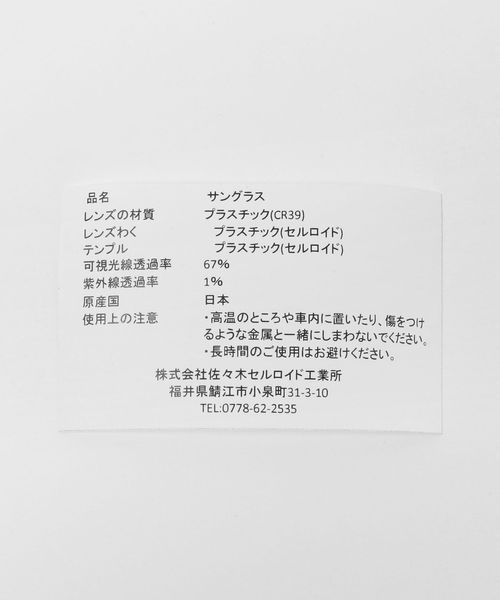 品名 サングラス
レンズの材質 プラスチック(CR39)
レンズわく プラスチック(セルロイド)
テンプル プラスチック(セルロイド)
可視光線透過率 67%
紫外線透過率 1%
原産国 日本
使用上の注意 ・高温のところや車内に置いたり、傷をつけ
るような金属と一緒にしまわないでください。
・長時間のご使用はお避けください。
株式会社佐々木セルロイド工業所
福井県鯖江市小泉町31-3-10
TEL:0778-62-2535